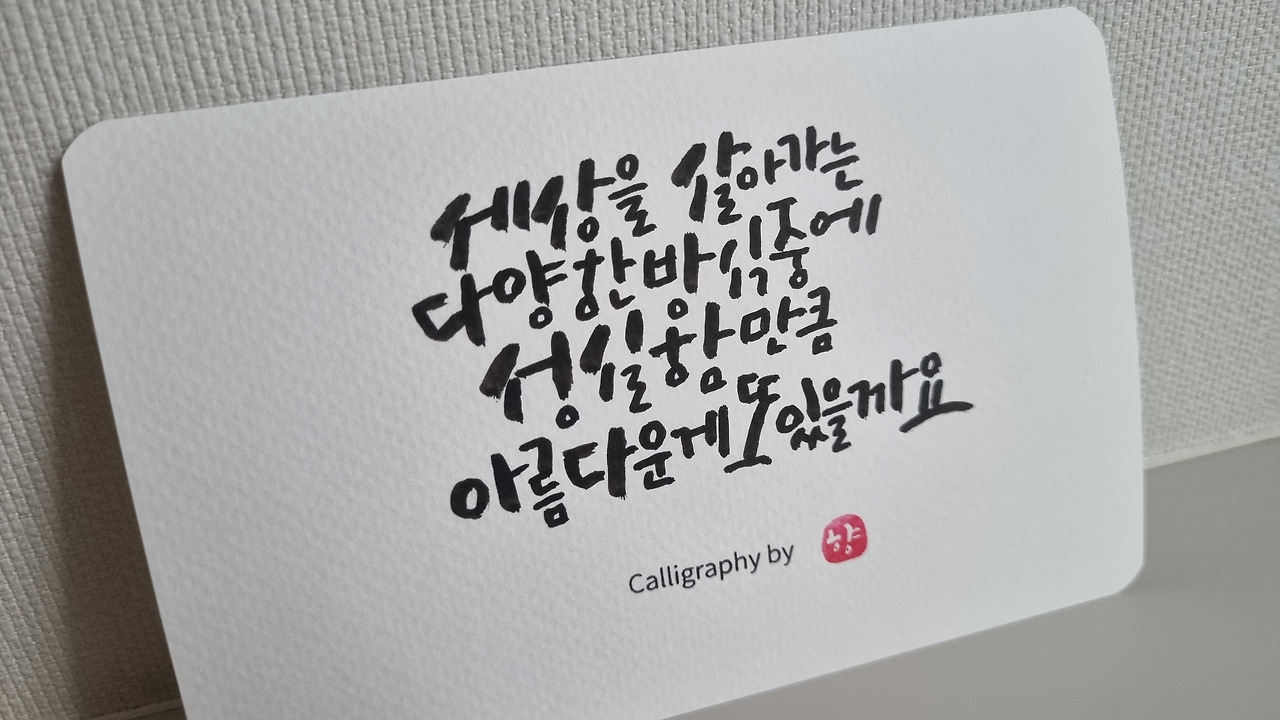 세상을 살아가는
다양한 방식 중에
성실함만큼
아름다운게 또 있을까요
Calligraphy by 향